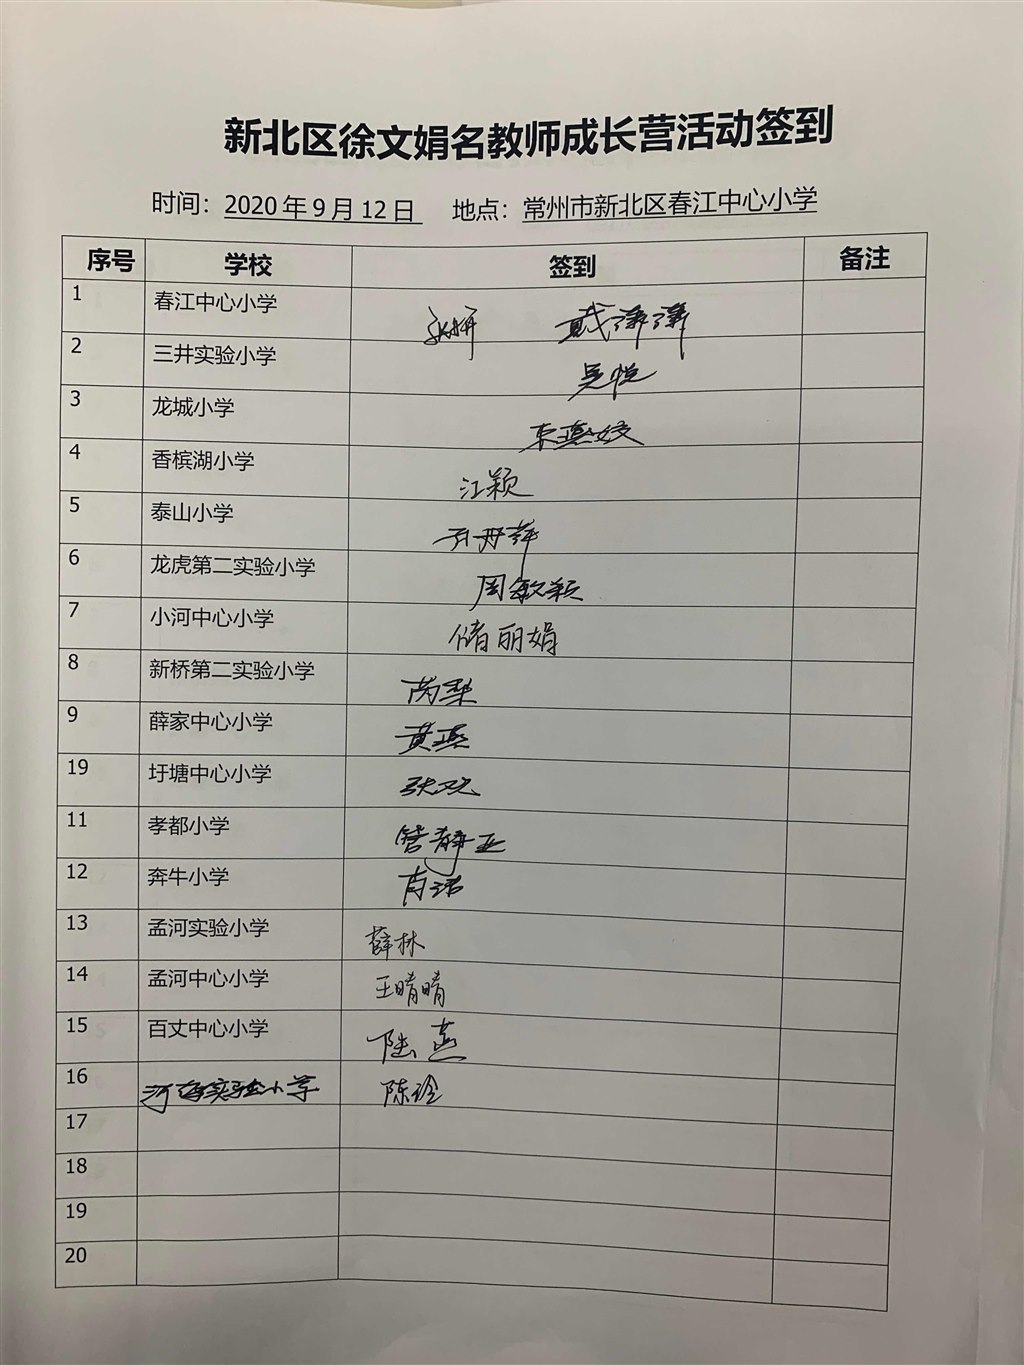 新北区徐文娟名教师成长营活动签到
时间：2020年9月12日 地点：常州市新北区春江中心小学
序号 学校 签到 备注
1 春江中心小学 张妍 戴潇潇
2 三井实验小学 吴悦
3 龙城小学 朱燕姣
4 香槟湖小学 江颖
5 泰山小学 孙丹萍
6 龙虎第二实验小学 周敏颖
7 小河中心小学 储丽娟
8 新桥第二实验小学 芮梨
9 薛家中心小学 黄燕
19 圩塘中心小学 张欢
11 孝都小学 管静亚
12 奔牛小学 肖洁
13 孟河实验小学 薛林
14 孟河中心小学 王晴晴
15 百丈中心小学 陆燕
16 河海实验小学 陈玲
17
18
19
20